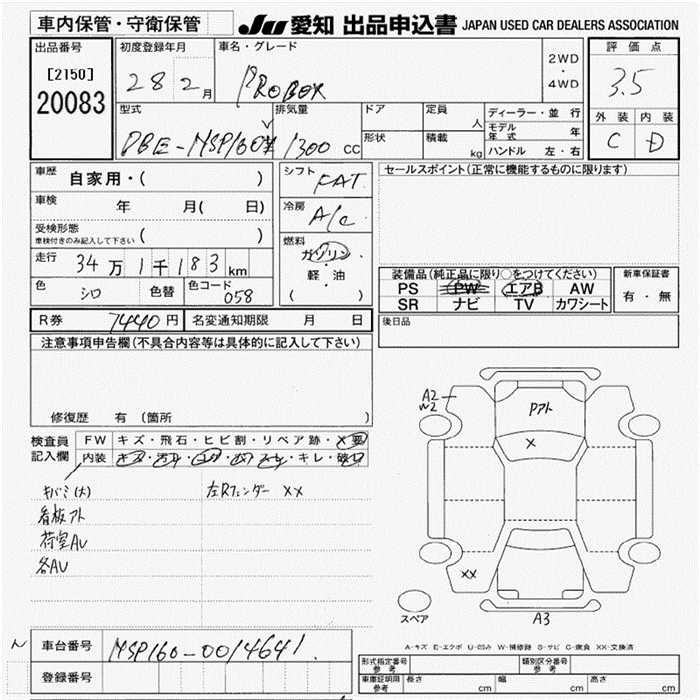 車内保管・守衛保管
JU 愛知 出品申込書 JAPAN USED CAR DEALERS ASSOCIATION
出品番号
[2150]
20083
初度登録年月
28 2月
車名・グレード
PROBOX
2WD
・
4WD
評価点
3.5
外装 内装
C D
型式
DBE-NSP160V
排気量
1300 cc
ドア
形状
定員
人
積載
kg
ディーラー・並行
モデル年式 年
ハンドル 左・右
車歴 自家用・( )
車検 年 月( 日)
受検形態
車検付きのみ記入して下さい ( )
走行 34万1千183km
色 シロ 色替 色コード 058
シフト FAT
冷房 A/C
燃料
ガソリン
・
軽・油
( )
セールスポイント(正常に機能するものに限ります)
装備品(純正品に限り○をつけてください)
PS PW エアB AW
SR ナビ TV カワシート
新車保証書
有・無
後日品
R券 7440円 名変通知期限 月 日
注意事項申告欄(不具合内容等は具体的に記入して下さい)
修復歴 有 (箇所 )
検査員記入欄
FW キズ・飛石・ヒビ割・リペア跡・X要
内装 キズ・汚れ・コゲ・穴・スレ・キレ・破レ
キバミ(大)
看板アト
荷室AU
各AU
左Rフェンダー XX
A2
W2
Pアト
X
XX
A3
スペア
A-キズ E-エクボ U-凹み W-補修跡 S-サビ C-腐食 XX-交換済
車台番号 NSP160-0014641
登録番号
形式指定番号
参考
類別区分番号
参考
車庫証明用
参考
長さ cm 幅 cm 高さ cm